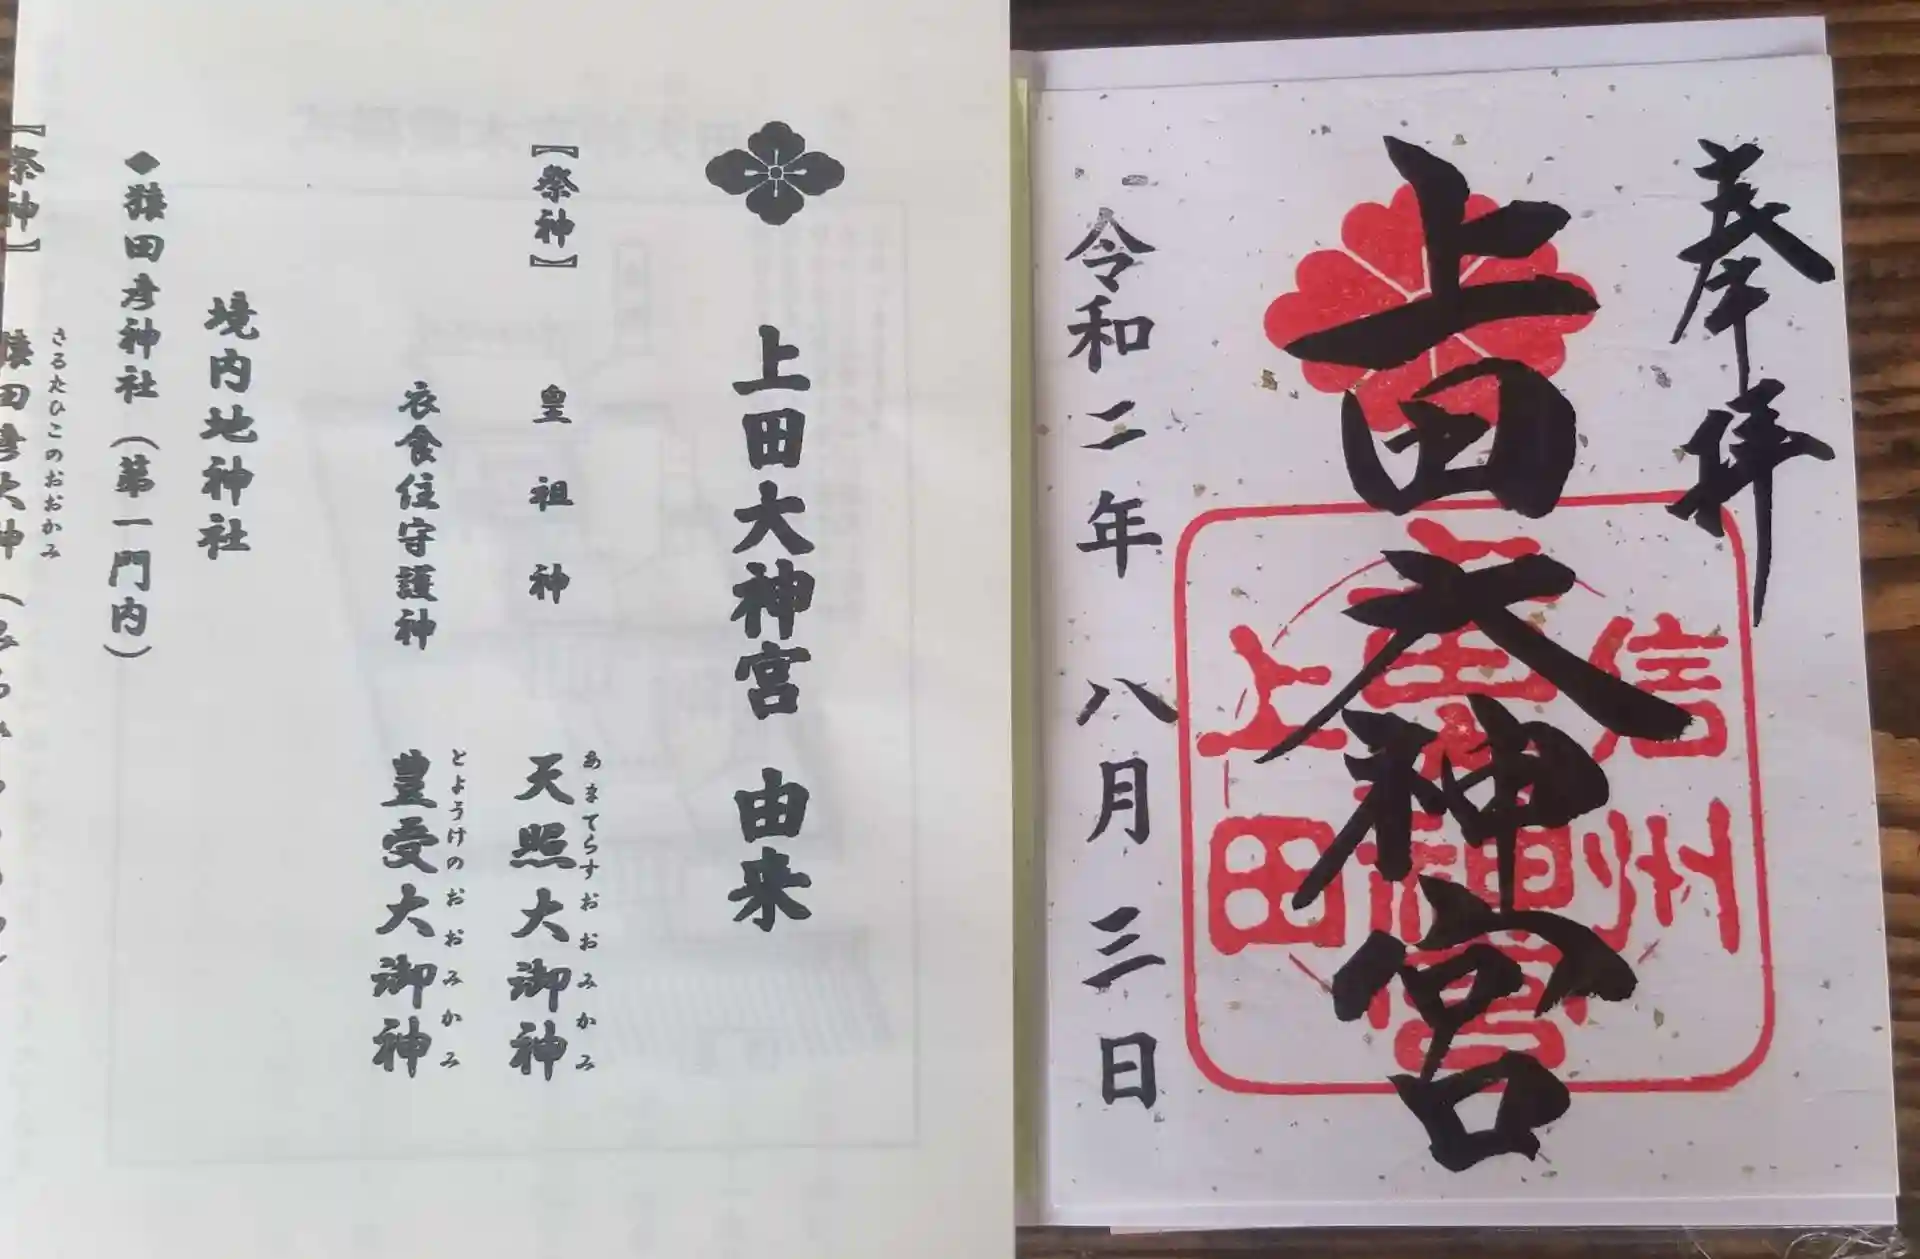 奉拝
上田大神宮
信州
上田大神宮
上田
令和二年 八月三日
上田大神宮 由来
【祭神】 皇祖神 天照大御神
あまてらすおおみかみ
衣食住守護神 豊受大御神
とようけのおおみかみ
境内地神社
◆猿田彦神社(第一門内)
さるたひこのおおかみ
【祭神】 猿田彦大神